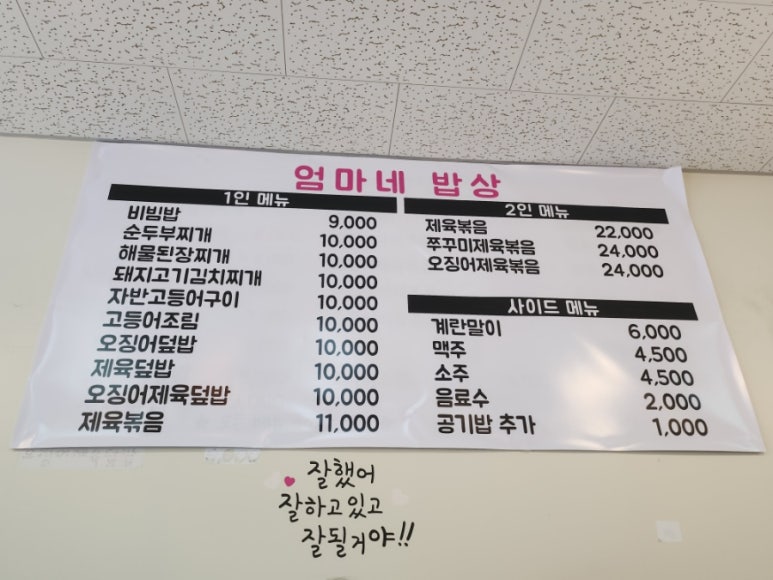 엄마네 밥상
1인 메뉴
비빔밥 9,000
순두부찌개 10,000
해물된장찌개 10,000
돼지고기김치찌개 10,000
자반고등어구이 10,000
고등어조림 10,000
오징어덮밥 10,000
제육덮밥 10,000
오징어제육덮밥 10,000
제육볶음 11,000
2인 메뉴
제육볶음 22,000
쭈꾸미제육볶음 24,000
오징어제육볶음 24,000
사이드 메뉴
계란말이 6,000
맥주 4,500
소주 4,500
음료수 2,000
공기밥 추가 1,000
잘했어
잘하고있고
잘될거야!!